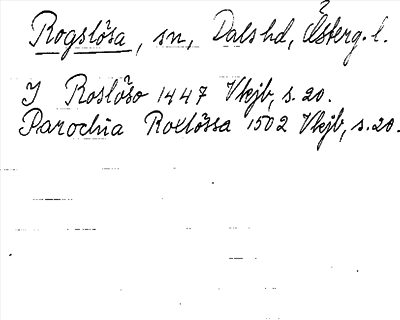 Rogslösa, sn, Dals hd, Österg. l.
I Roslöso 1447 Vkjb, s. 20.
Parochia Roxlössa 1502 Vkjb, s. 20.